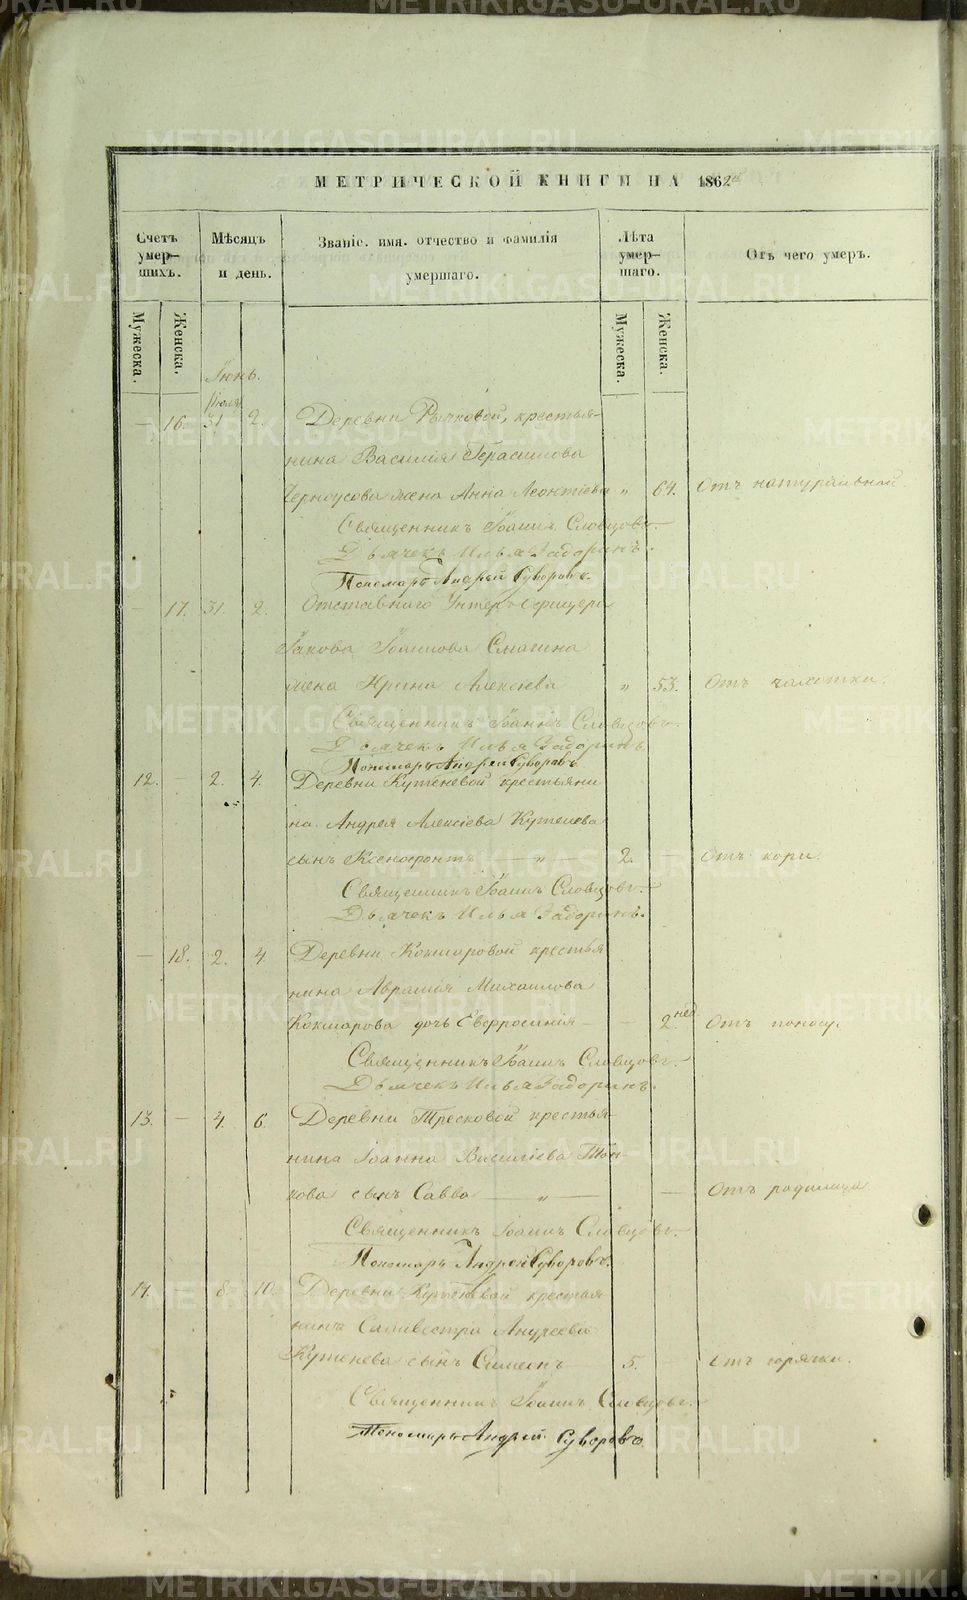 МЕТРИЧЕСКОЙ КНИГИ НА 1862 й
Счетъ умер-шихъ.
Мѣсяцъ и день.
Званіе, имя, отчество и фамилія умершаго.
Лѣта умер-шаго.
Отъ чего умеръ.
Мужеска.
Женска.
Мужеска.
Женска.
Іюнь. Іюля
— 16. 31 2. Деревни Рычковой, крестья-
нина Василія Герасимова
Черноусова жена Анна Леонтіева „ 64. Отъ натуральной.
Священникъ Іоаннъ Словцовъ.
Дьячекъ Илья Задоринъ.
Пономарь Андрей Суворовъ.
— 17. 31. 2. Отставнаго Унтеръ-Офицера
Іакова Іоаннова Смагина
жена Ирина Алексіева „ 53. Отъ чахотки.
Священникъ Іоаннъ Словцовъ.
Дьячекъ Илья Задоринъ.
Пономарь Андрей Суворовъ.
12. — 2. 4. Деревни Кутеневой крестьяни
на Андрея Алексіева Кутенева
сынъ Ксенофонтъ — „ — 2. — Отъ кори.
Священникъ Іоаннъ Словцовъ.
Дьячекъ Илья Задоринъ.
— 18. 2. 4. Деревни Кокшаровой крестья
нина Аврамія Михаилова
Кокшарова дочь Евфросинія — — 2 нед. Отъ поносу.
Священникъ Іоаннъ Словцовъ.
Дьячекъ Илья Задоринъ.
13. — 4. 6. Деревни Тресковой крестья-
нина Іоанна Василіева
сынъ Савва — „ — — Отъ родимца.
Священникъ Іоаннъ Словцовъ.
Пономарь Андрей Суворовъ.
14. — 8. 10. Деревни Кутеневой крестья
нина Силивестра Андреева
Кутенева сынъ Симеонъ — 5. — Отъ горячки.
Священникъ Іоаннъ Словцовъ.
Пономарь Андрей Суворовъ
METRIKI.GASO-URAL.RU